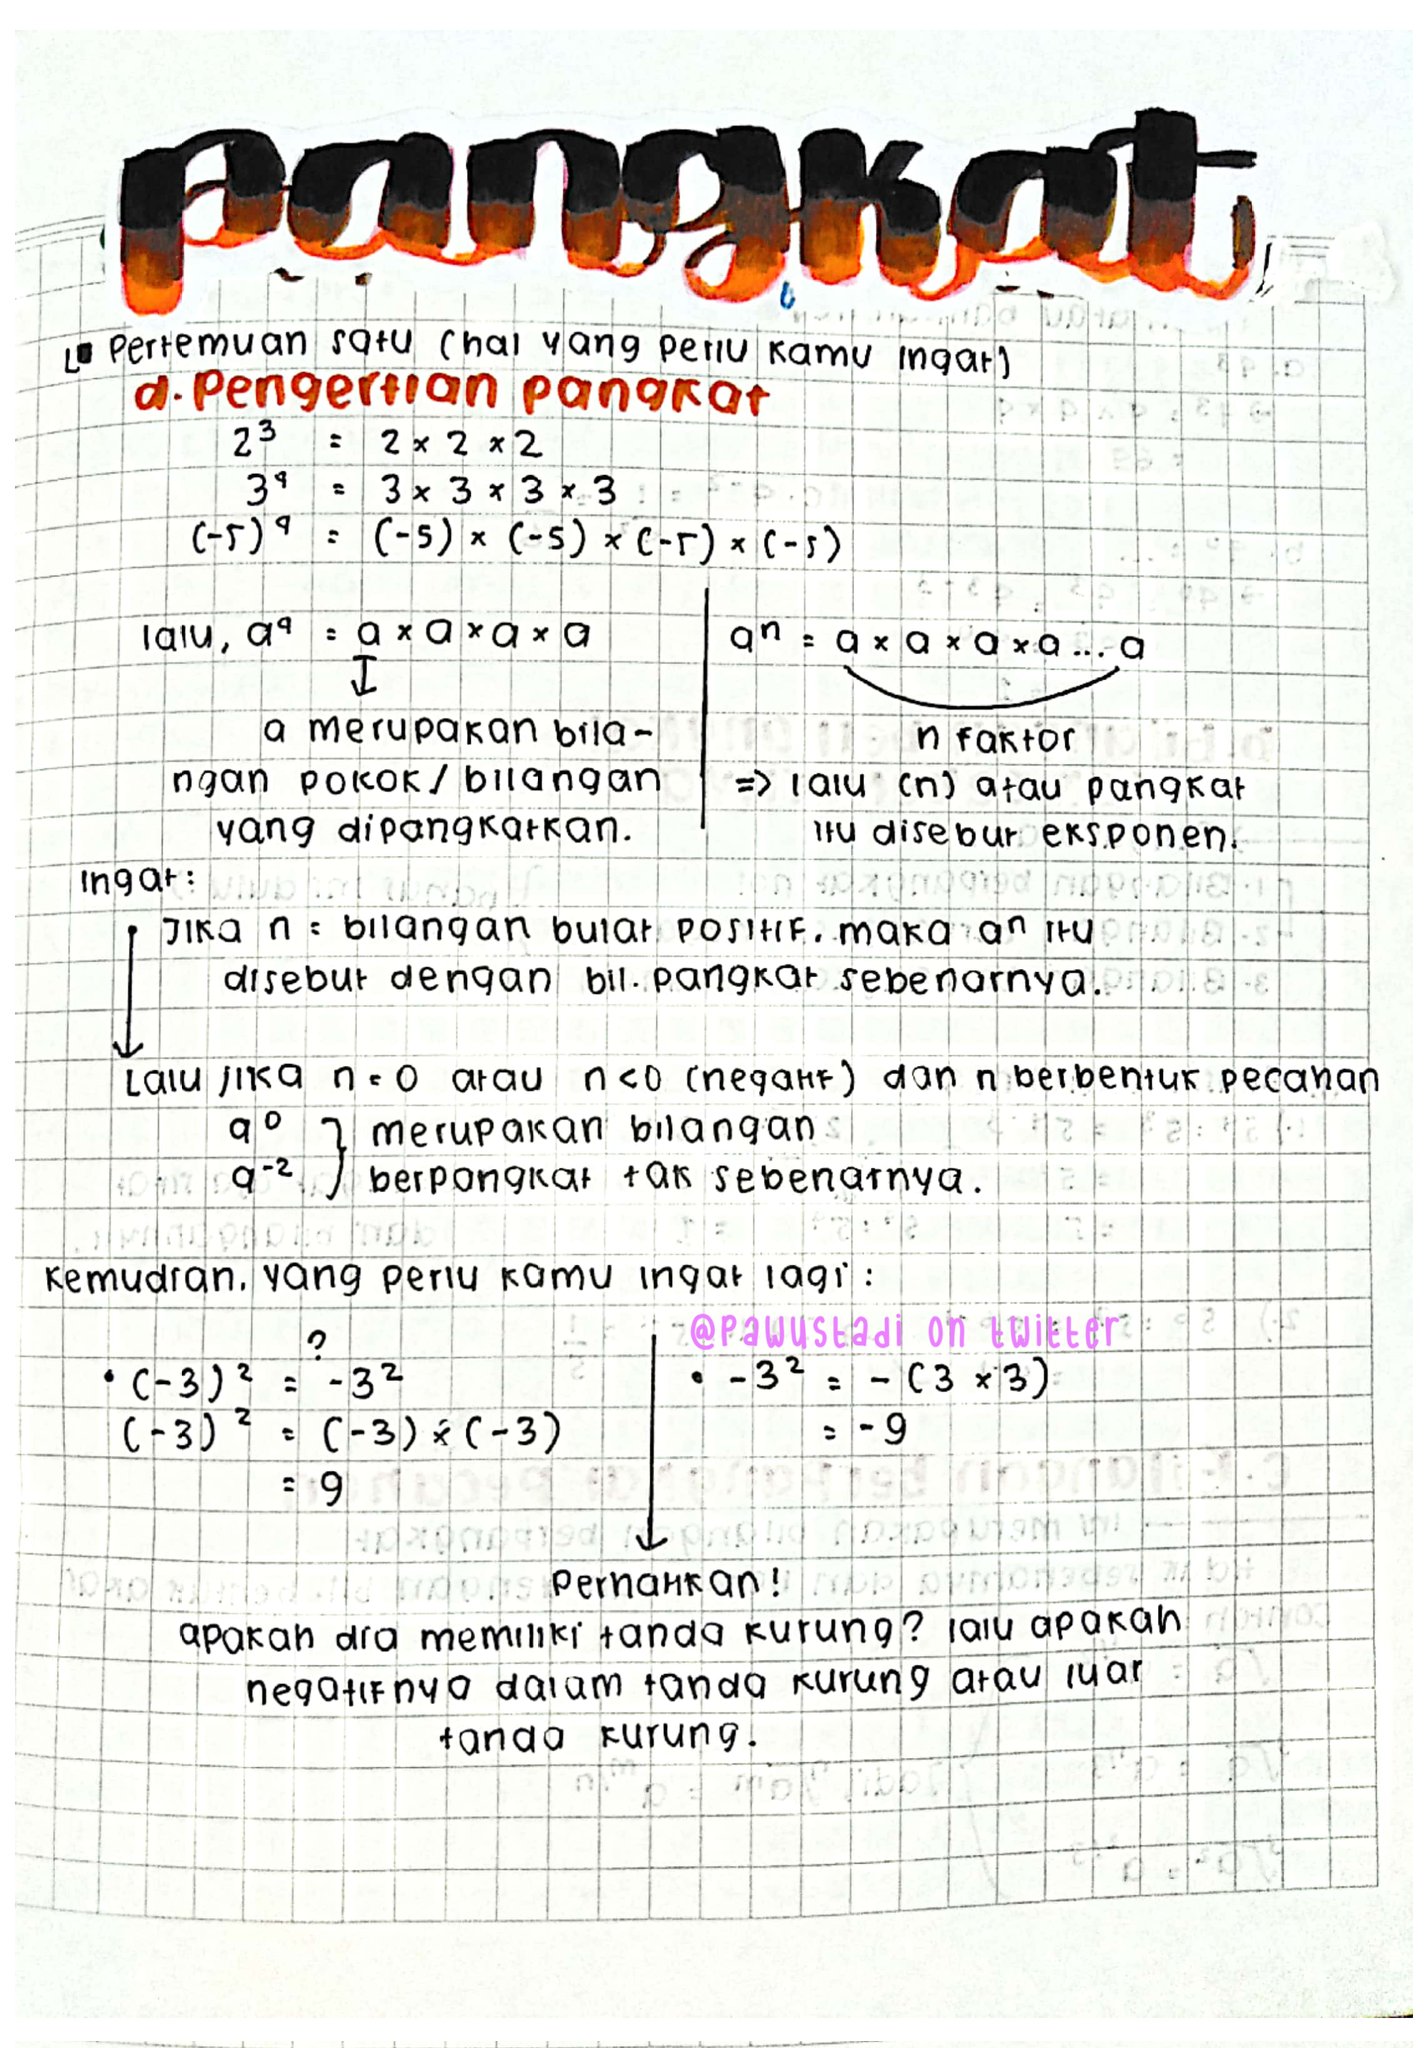 pangkat
Pertemuan satu (hal yang perlu kamu ingat)
a. Pengertian pangkat
2³ = 2 × 2 × 2
3⁴ = 3 × 3 × 3 × 3
(-5)⁴ = (-5) × (-5) × (-5) × (-5)
lalu, a⁴ = a × a × a × a
a merupakan bila-
ngan pokok / bilangan
yang dipangkatkan.
aⁿ = a × a × a × a ... a
n faktor
=> lalu (n) atau pangkat
itu disebut eksponen.
Ingat:
Jika n = bilangan bulat positif. maka aⁿ itu
disebut dengan bil. pangkat sebenarnya.
Lalu jika n = 0 atau n < 0 (negatif) dan n berbentuk pecahan
a⁰ } merupakan bilangan
a⁻² } berpangkat tak sebenarnya.
Kemudian, yang perlu kamu ingat lagi :
@pawustadi on twitter
?
• (-3)² = -3²
(-3)² = (-3) × (-3)
= 9
• -3² = - (3 × 3)
= -9
Perhatikan!
apakah dia memiliki tanda kurung? lalu apakah
negatifnya dalam tanda kurung atau luar
tanda kurung.